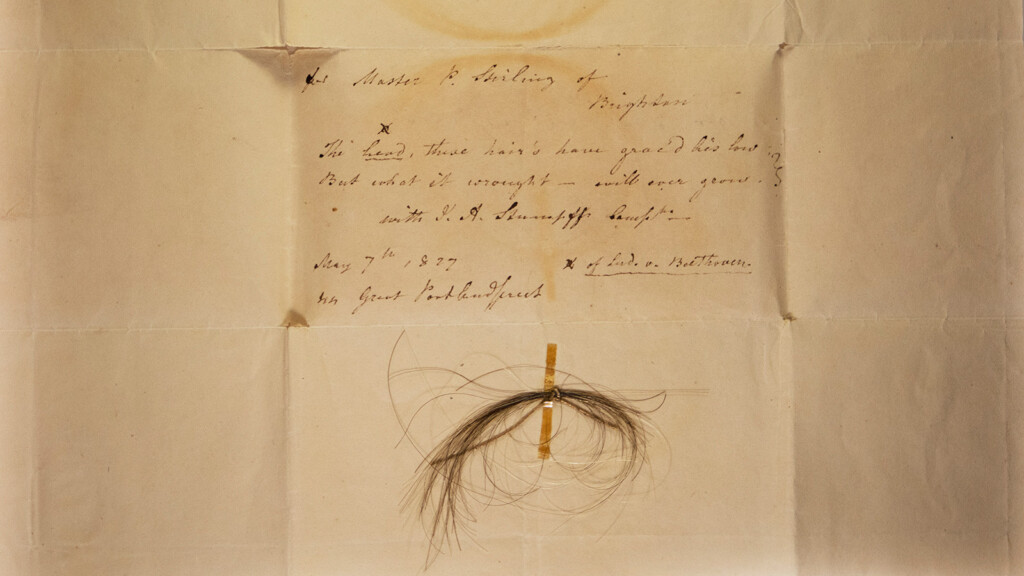 for Master P. Stirling of
Brighton
x
The head, these hair's have grac'd lies low
But what it wrought — will ever grow.
with J. A. Stumpff's
May 7th 1827 x of Lud. v. Beethoven.
Great Portlandstreet